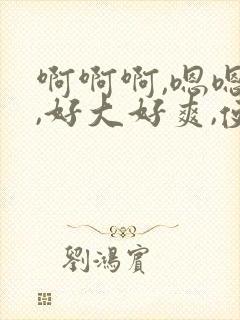 啊啊啊,嗯嗯
,好大好爽,使
劉鴻賓